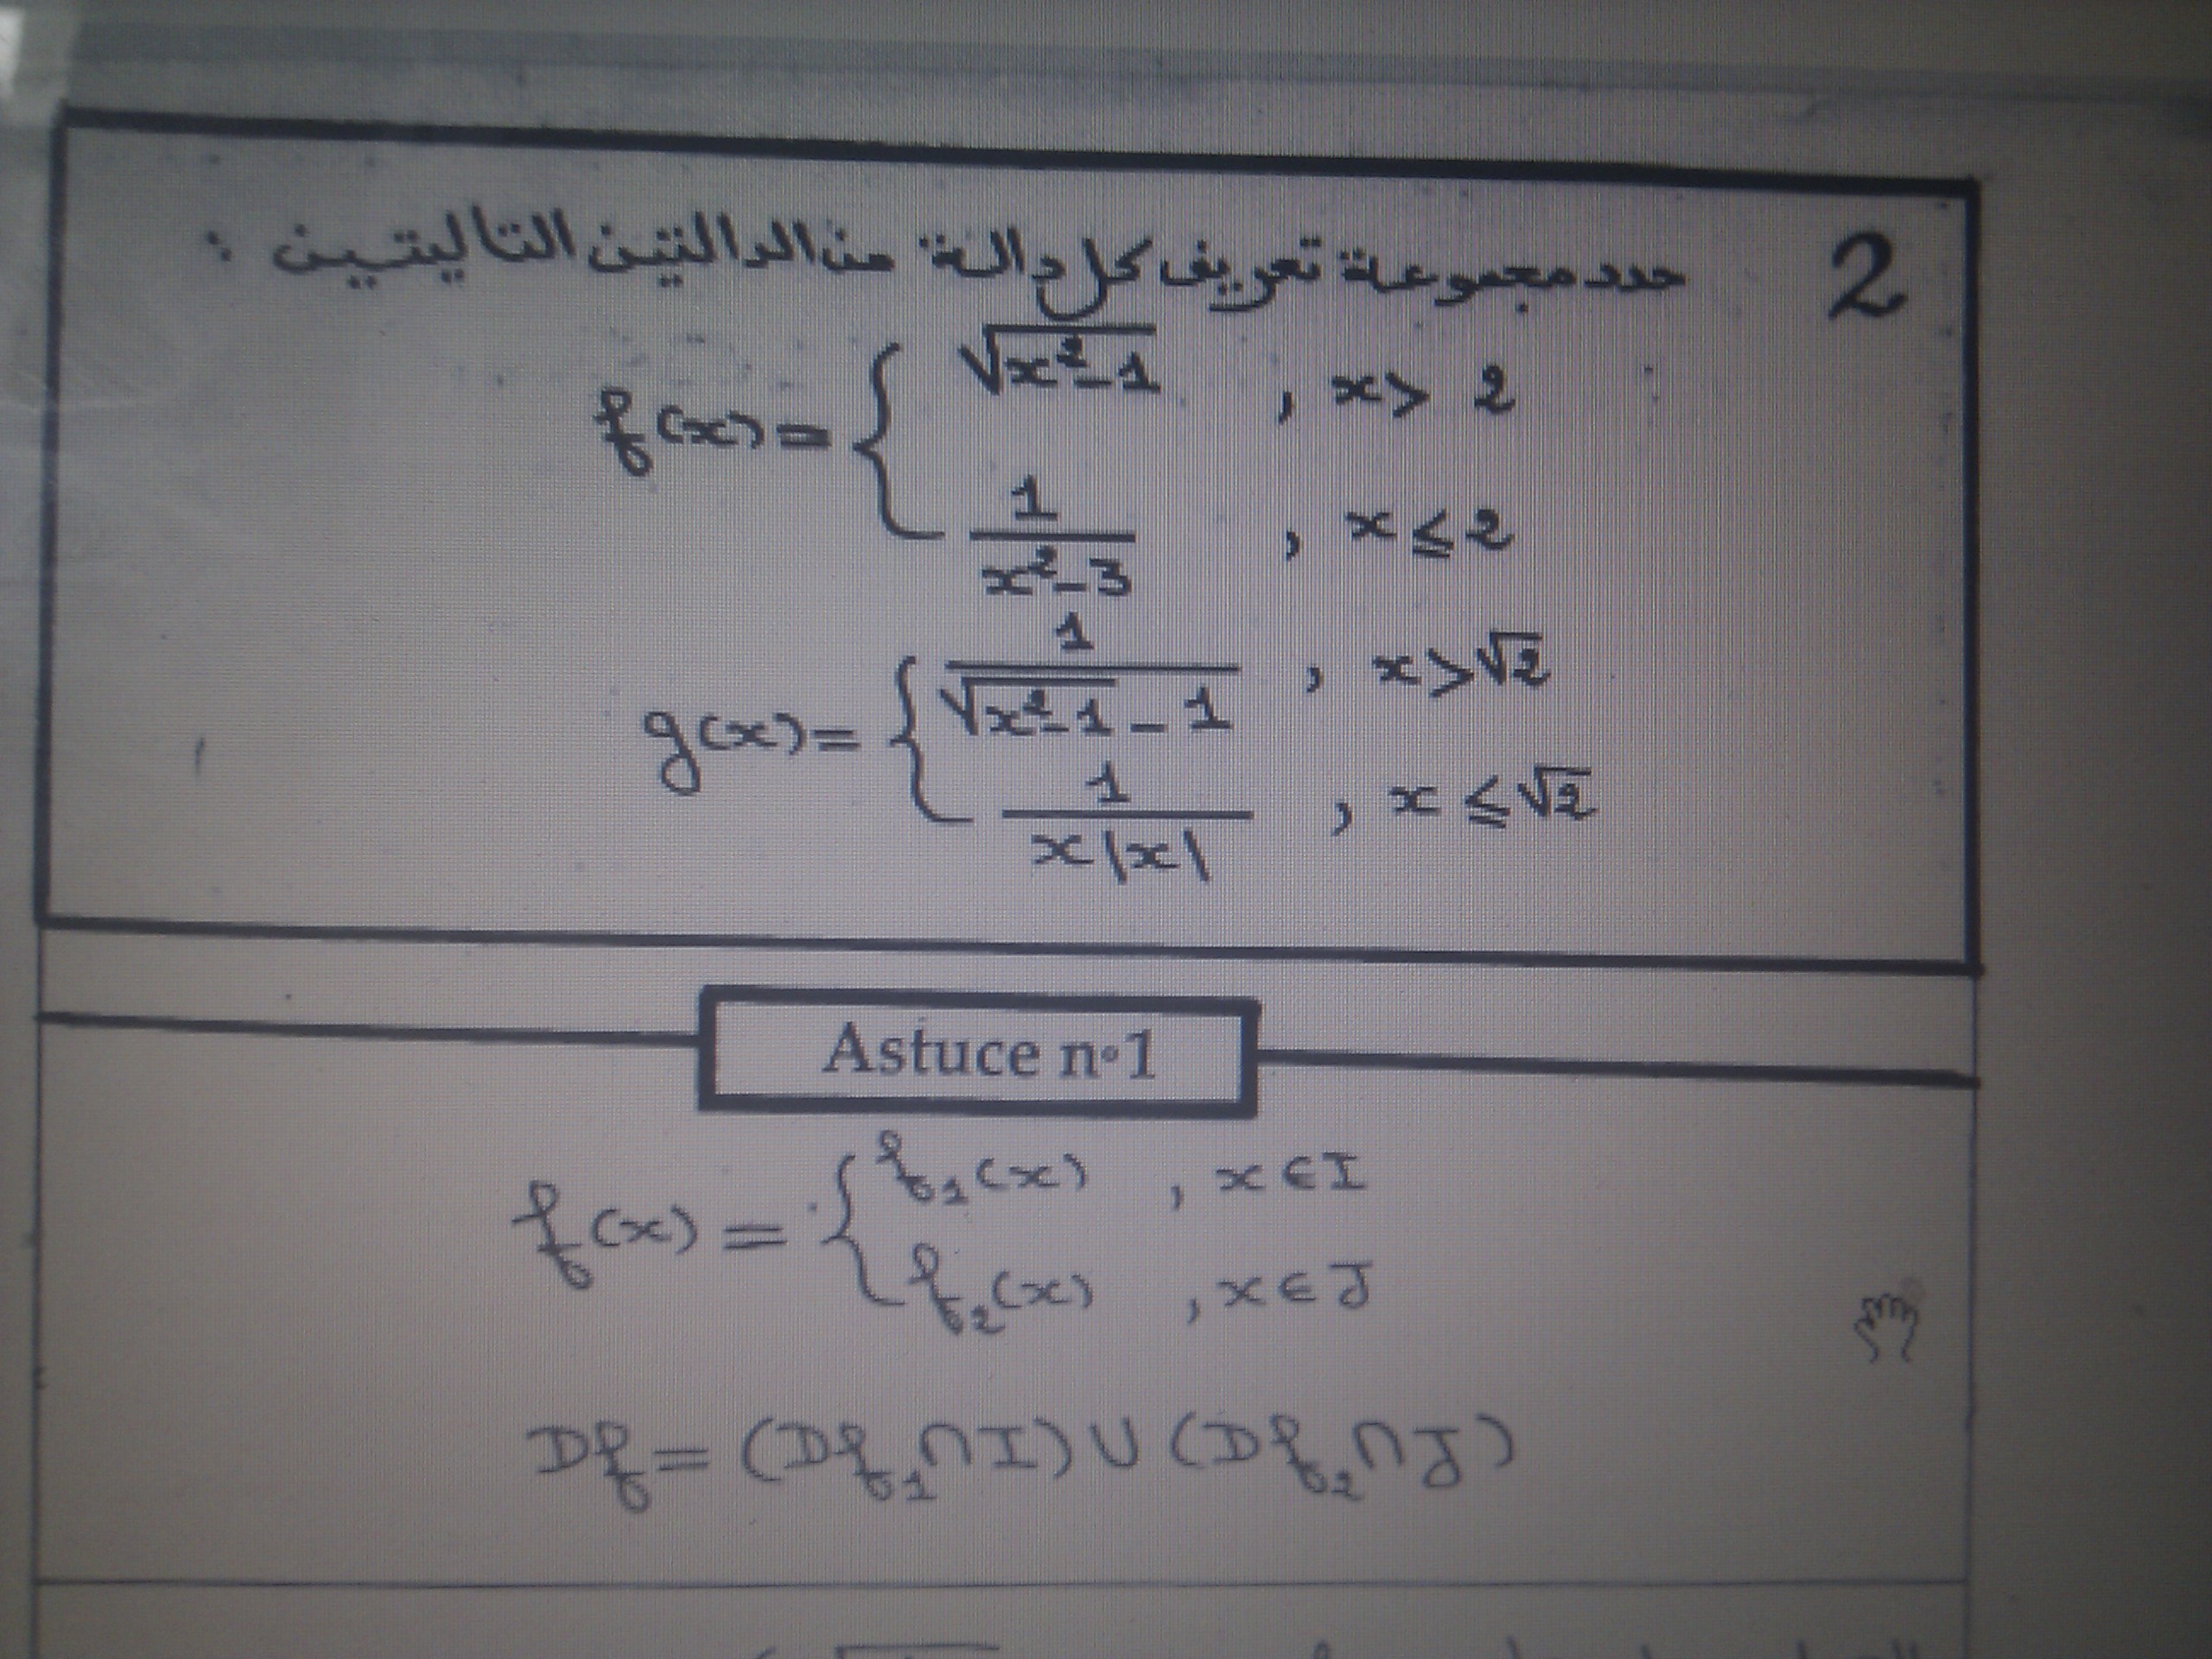 2 حدد مجموعة تعريف كل دالة من الدالتين التاليتين :
f(x) = { √(x²-1) , x > 2
1/(x²-3) , x ≤ 2
g(x) = { 1/(√(x²-1) - 1) , x > √2
1/(x|x|) , x ≤ √2
Astuce n°1
f(x) = { f₁(x) , x ∈ I
f₂(x) , x ∈ J
Df = (Df₁ ∩ I) ∪ (Df₂ ∩ J)